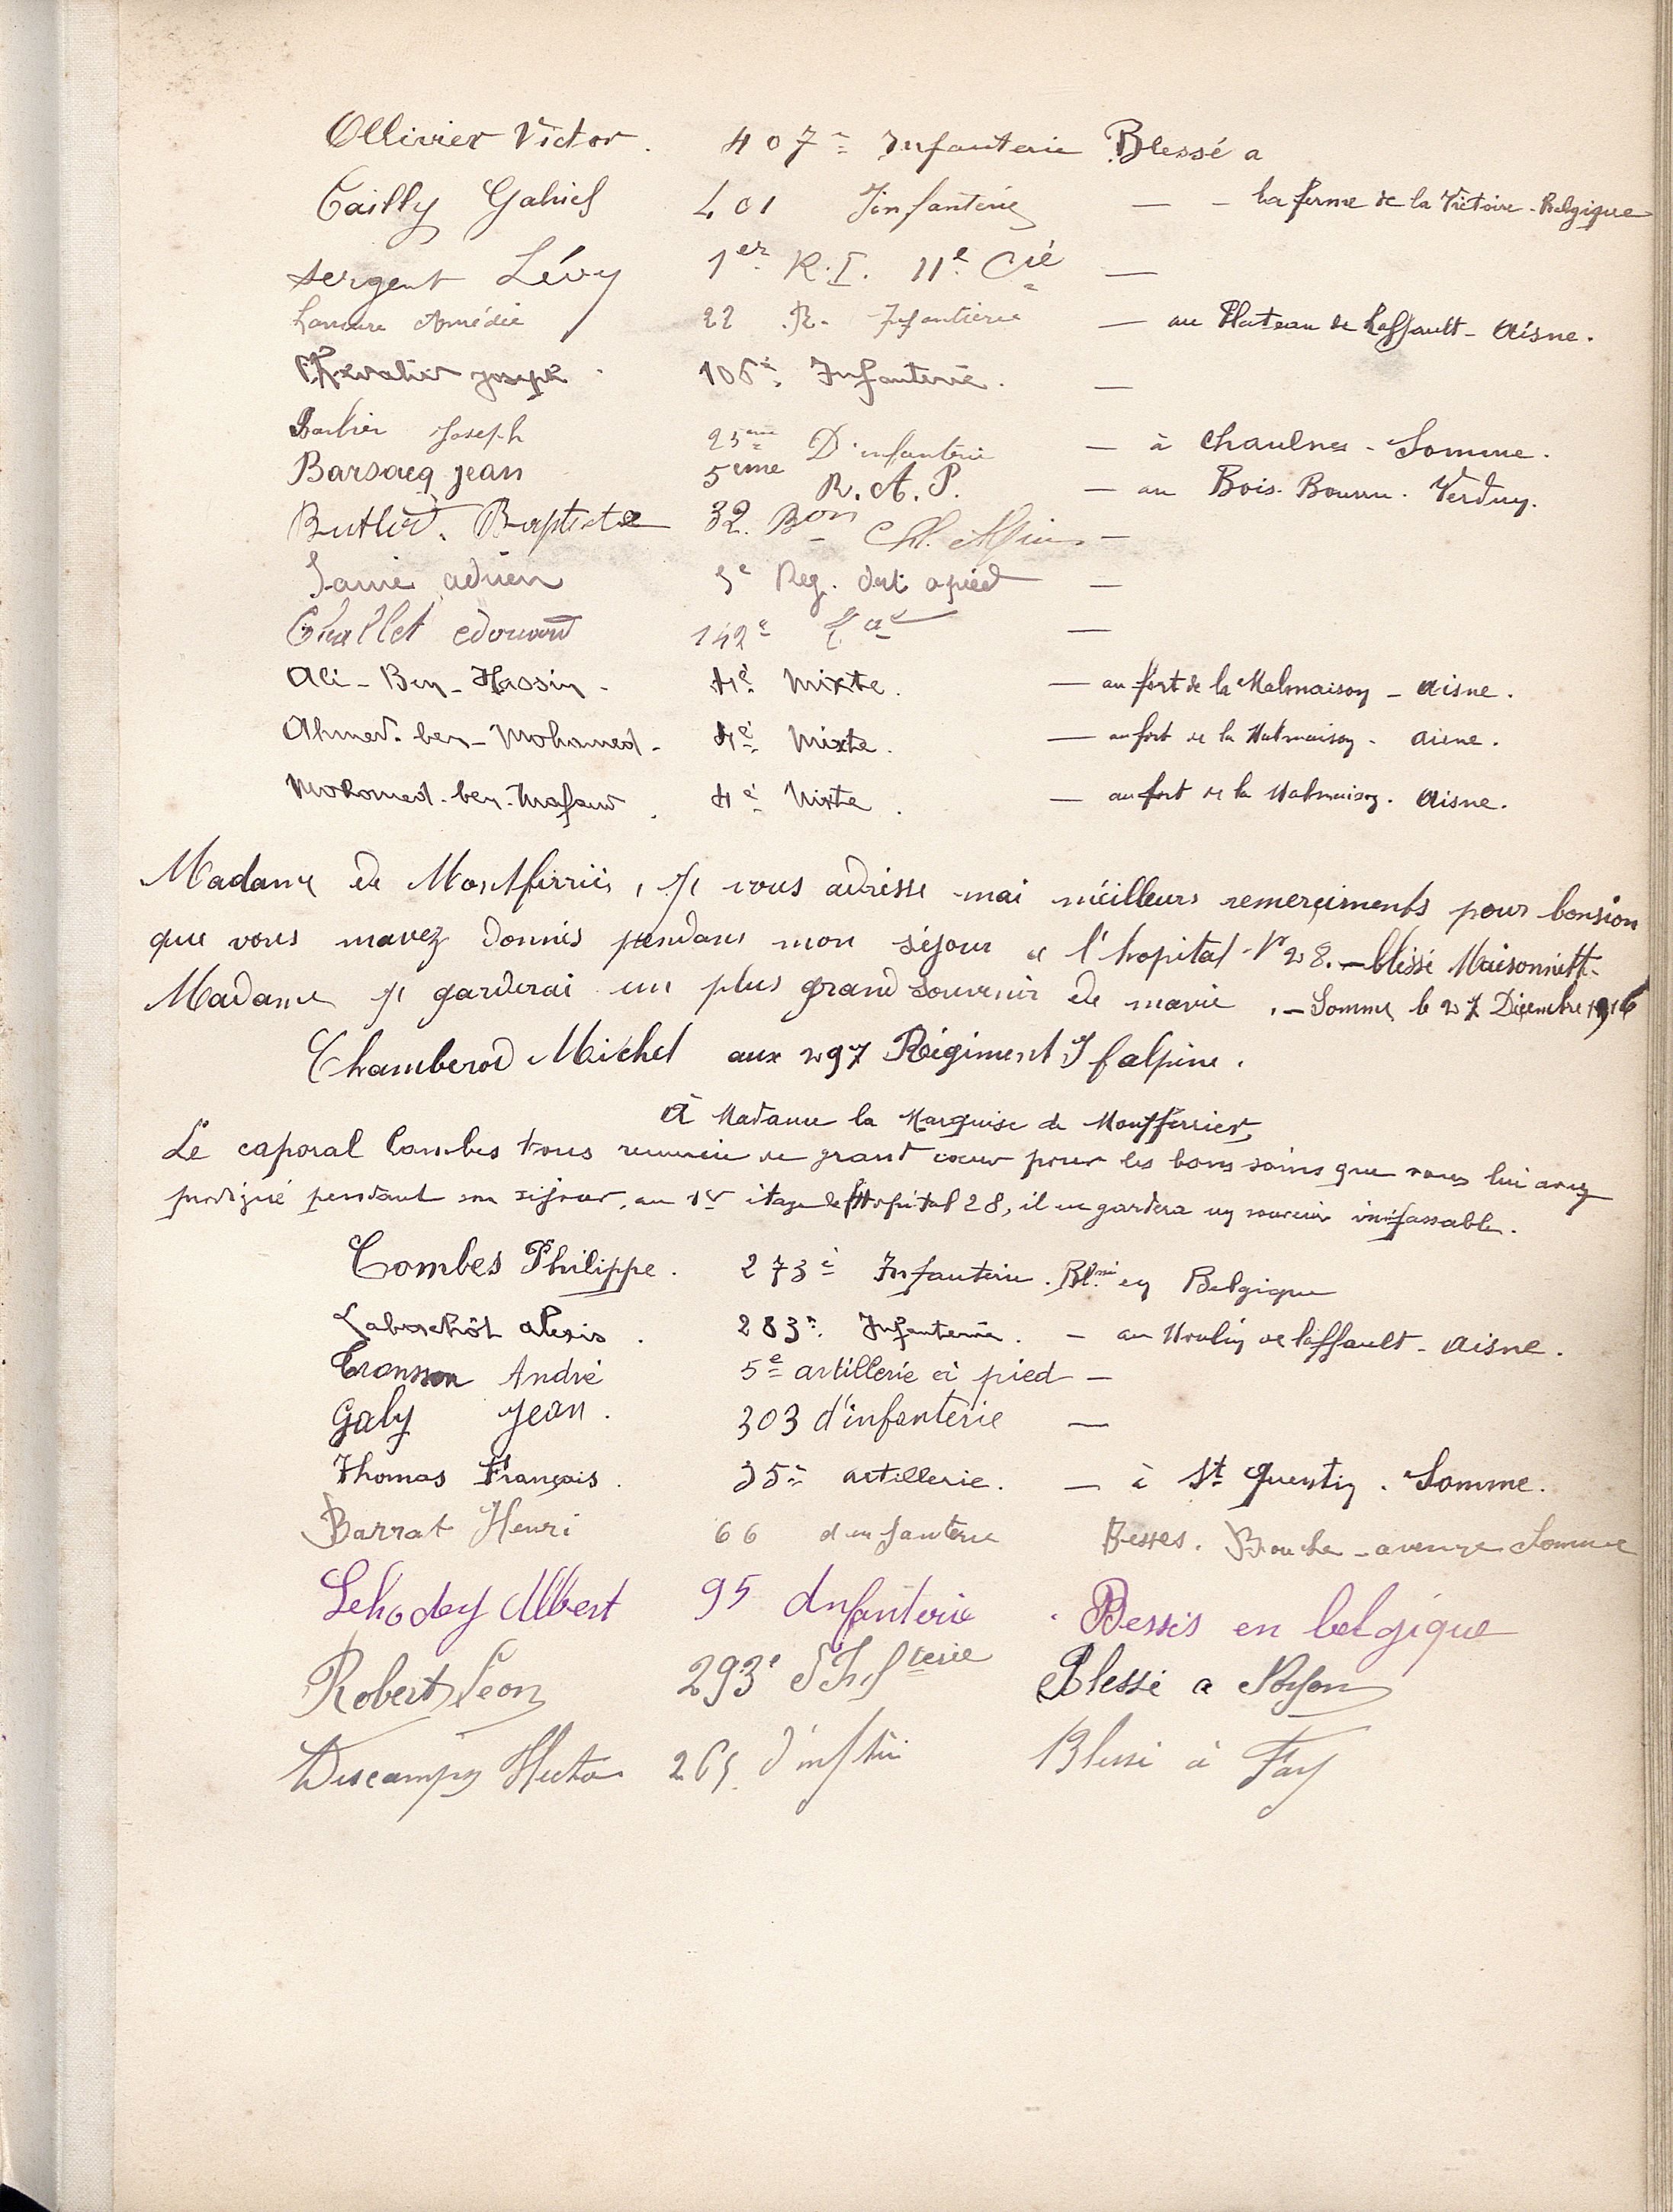 Ollivier Victor. 407e Infanterie Blessé a
Cailly Gabriel 401 Jinfanterie — - la ferme de la Victoire - Belgique
Sergent Lévy 1er R.I. 11e Cie —
Amédée 22 R. Infanterie — au Plateau de Laffault - Aisne.
Chevalier Joseph. 106e Infanterie. —
Barbier Joseph 25eme D'infanterie — à Chaulnes - Somme.
Barsacq Jean 5eme R.A.P. — au Bois Bourru. Verdun.
Baptiste 32. Bon Ch. Alpins —
adrien 5e Reg. dart a pied —
edouard 142e —
Ali - Ben - Hassin. 4e Mixte. — au fort de la Malmaison - Aisne.
Ahmed. ben - Mohamed. 4e Mixte. — au fort de la Malmaison - Aisne.
Mohamed. ben. 4e Mixte. — au fort de la Malmaison. Aisne.
Madame de Montferriès, Je vous adresse mai méilleurs remerçiments pour bonsion
que vous mavez donnés pendans mon séjour a l'hopital No 28. — blessé Maisonnett-
Madame Je garderai un plus grand souvenir de mavie. — Somme le 27 Décembre 1916
Chamberod Michel aux 297 Régiment I falpine.
A Madame la Marquise de Montferrier,
Le caporal Combes vous remercie de grant cœur pour les bons soins que vous lui avez
prodigué pendant son séjour, au 1er étage de Hopital 28, il en gardera un souvenir inéfassable.
Combes Philippe. 273e Infanterie. Bl.ssé en Belgique
Alexis. 283e. Infanterie. — au Moulin de Laffault - Aisne.
Tronsson André 5e artillerie à pied —
Galy Jean. 303 d'infanterie —
Thomas Français. 35e artillerie. — à St Quentin. Somme.
Barrat Henri 66 dinfanterie Besses. Bouchavenne Somme
Lehodey Albert 95 dnfanterie. Bessés en belgique
Robert Léon 293e d'Infterie Blessé a Noyon
Descamps Hector 265. d'inftrie Blessé à Fay